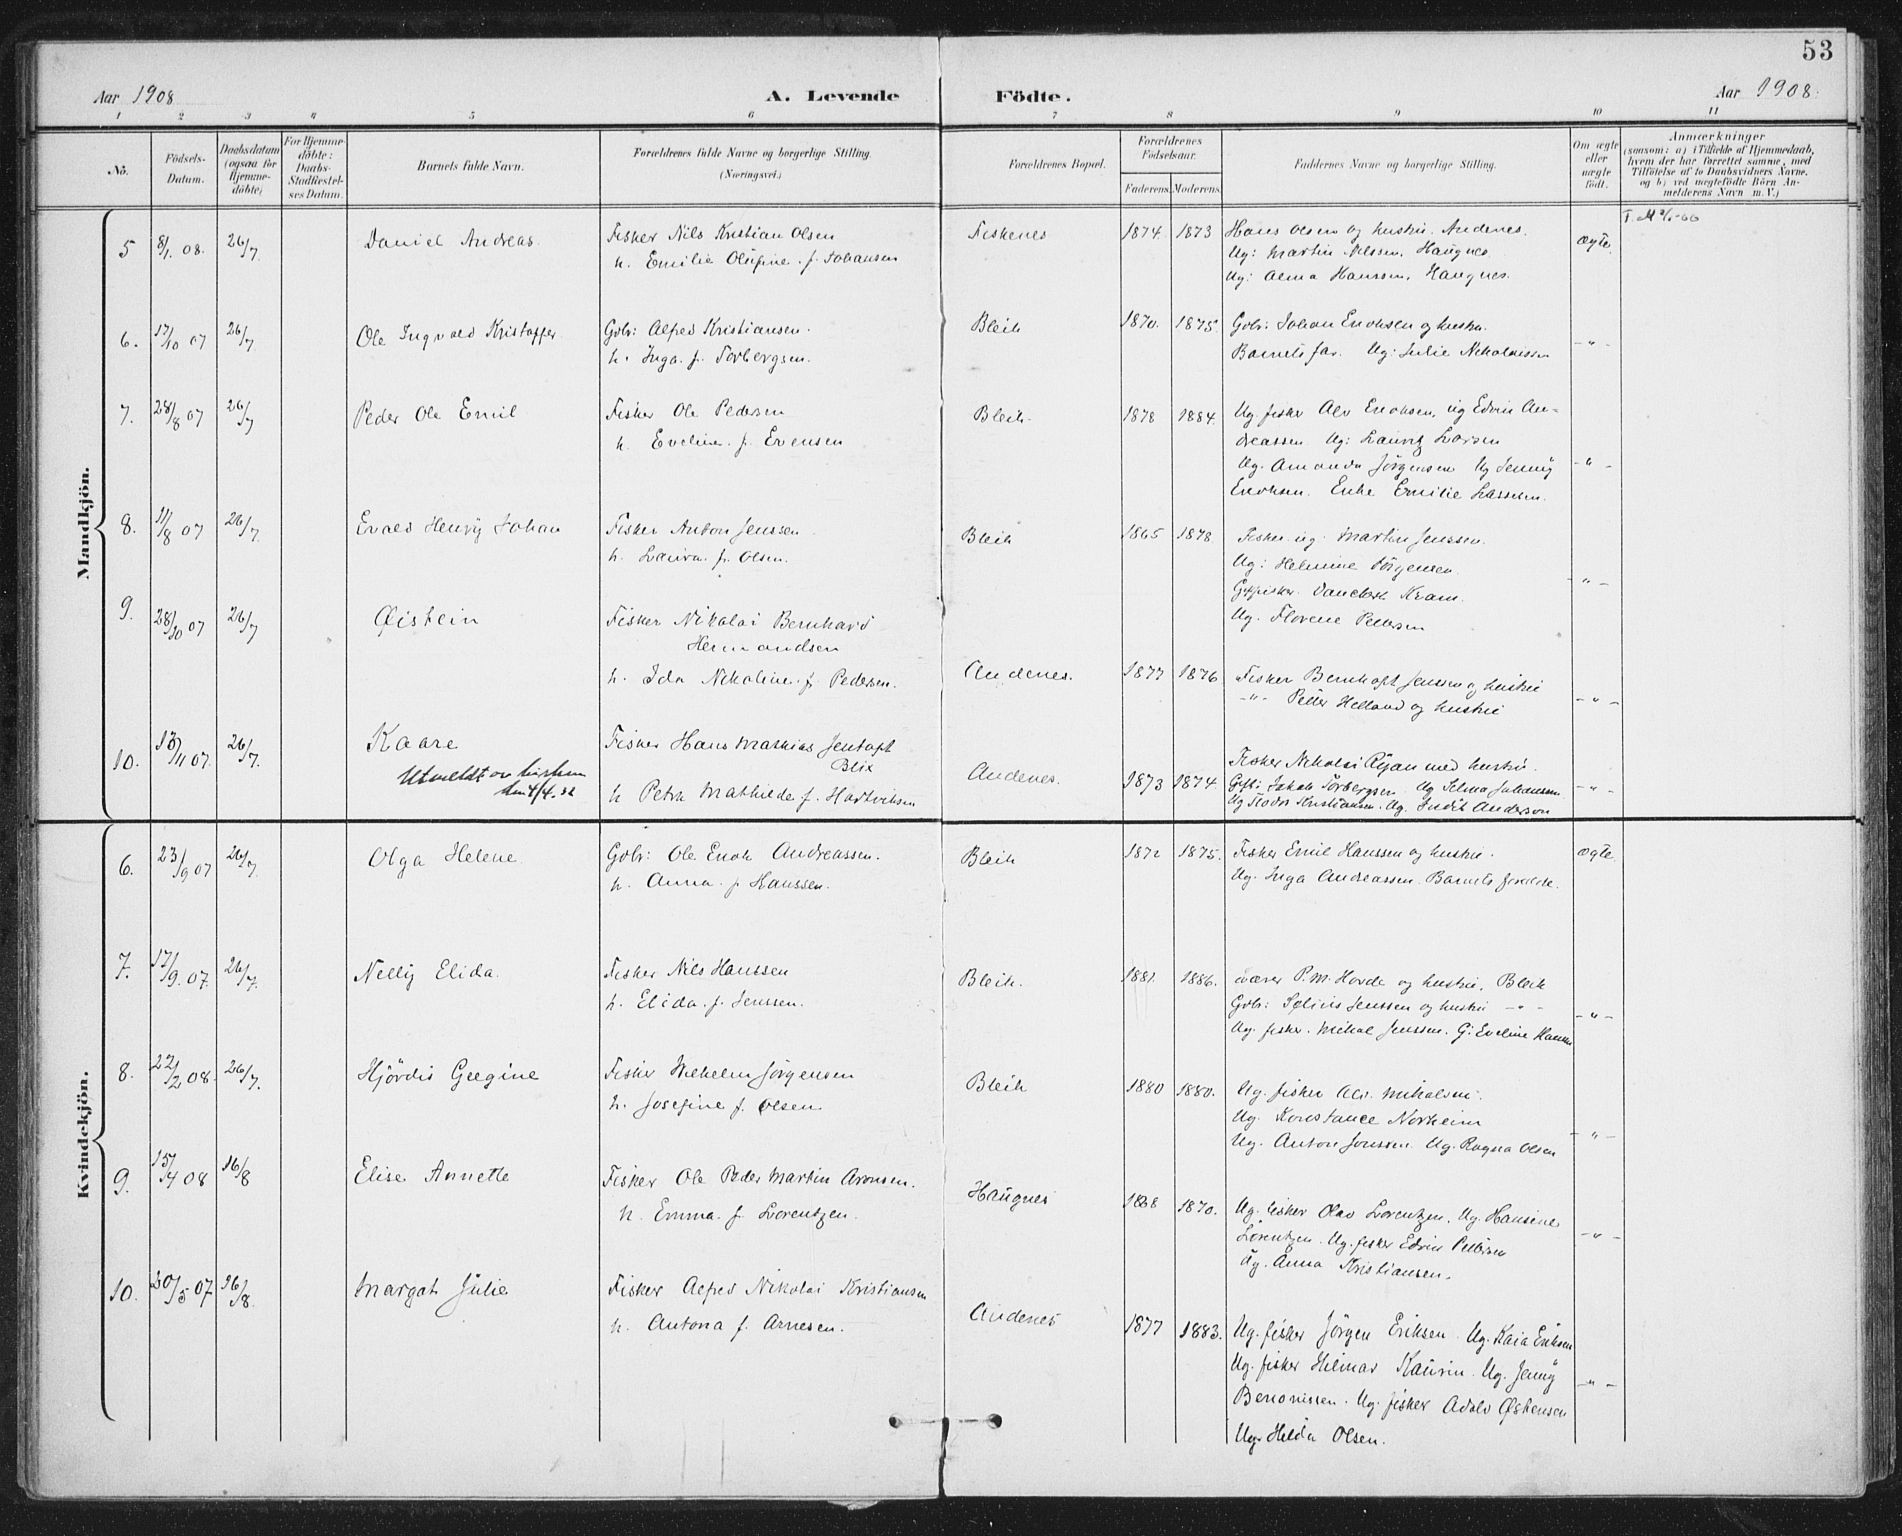 53
Aar 1908
A. Levende Födte.
Aar 1908.
1 2 3 4 5 6 7 8 9 10 11
No.
Födsels-Datum.
Daabsdatum (ogsaa for Hjemme-döbte)
For Hjemme-döbte: Daabs-Stadfæstel-ses Datum.
Barnets fulde Navn.
Forældrenes fulde Navne og borgerlige Stilling. (Næringsvei.)
Forældrenes Bopæl.
Forældrenes Födselsaar.
Faderens. Moderens.
Faddernes Navne og borgerlige Stilling.
Om ægte eller uægte födt.
Anmærkninger
(saasom: a) i Tilfælde af Hjemmedaab,
hvem der har forrettet samme, med
Tilföielse af to Daabsvidners Navne,
og b) ved uægtefödte Börn An-
melderens Navn m. V.)
Mandkjön.
5 8/1 08. 26/7 Daniel Andreas. Fisker Nils Kristian Olsen Fiskenes 1874. 1873 Hans Olsen og hustru. Andenes. ægte.
h. Emilie Olufine. f. Johansen Ug: Martin Nilssen, Haugnes
Ug: Alma Hanssen, Haugnes.
6. 17/10 07 26/7 Ole Ingvald Kristoffer Gbr: Alfred Kristiansen. Bleik 1870. 1875. Gbr: Johan Enoksen og hustru.
h. Inga. f. Torbergsen. Barnets far. Ug: Julie Nikolaissen -"-
7. 28/8 07 26/7 Peder Ole Emil Fisker Ole Pedersen Bleik. 1878 1884. Ug. fisker Alv Enoksen, ug Edvin An-
h. Eveline. f. Evensen dreassen Ug: Lauritz Larsen
Ug. Amanda Jörgensen Ug Jenny -"-
Enoksen. Enke Emilie Lassesen.
8. 11/8 07 26/7. Evald Henry Johan Fisker Anton Jenssen Bleik 1865 1878. Fisker ug. Martin Jenssen.
h. Laura. f. Olsen. Ug: Helmine Jörgensen
Kram. -"-
Ug. Florene Pettersen
9. 28/10 07 26/7 Øistein Fisker Nikolai Bernhard
Hermandsen
h. Ida Nikoline. f. Pedersen. Andenes. 1877 1876 Fisker Bernhoft Jenssen og hustru
-"- Peter Helland og hustru -"-
10. 13/11 07. 26/7. Kaare Fisker Hans Mathias Jentoft Fisker Nikolai med hustru.
Utmeldt av kirken Blix Andenes. 1873 1874. Gift: Jakob Torbergsen Ug Selma Johansen -"-
h Petra Mathilde f. Hartviksen Kristiansen. Ug. Anderson
Kvindekjön.
6. 23/9 07 26/7. Olga Helene Gbr: Ole Enok Andreassen. Bleik 1872 1875. Fisker Emil Hanssen og hustru. ægte.
h. Anna. f. Hanssen. Ug. Inga Andreassen. Barnets forældre.
7. 17/9. 07. 26/7. Nelly Elida. Fisker Nils Hanssen Bleik. 1881. 1886. P. M. Horde og hustru, Bleik
h. Elida. f. Jenssen. Gbr: Jenssen og hustru -"-
Ug. fisker. Mikal Jenssen. G: Eveline Hansen -"-
8. 22/2 08. 26/7. Hjördis Gurgine Fisker Wilhelm Jörgensen Bleik 1880 1880. Ug. fisker Mikalsen.
h. Josefine f. Olsen Ug. Konstance Norheim
Ug. Anton Jonssen. Ug. Ragna Olsen -"-
9. 15/4 08 16/8 Elise Annette Fisker Ole Peder Martin Aronsen. Haugnes 1868 1870. Ug. fisker Olav Lorentzen. Ug. Hansine
h. Emma. f. Lorentzen. Lorentzen. Ug. fisker Edvin Pettersen -"-
Ug. Anna Kristiansen.
10. 30/5 07 16/8. Margot Julie Fisker Alfred Nikolai Kristiansen
h. Antona f. Arnesen. Andenes 1877 1883. Ug. fisker Jörgen Eriksen. Ug. Kaia Eriksen
Ug. fisker Hilmar Kaurin. Ug. Jenny -"-
Benonissen. Ug. fisker Adolv Østensen
Ug. Hilda Olsen.